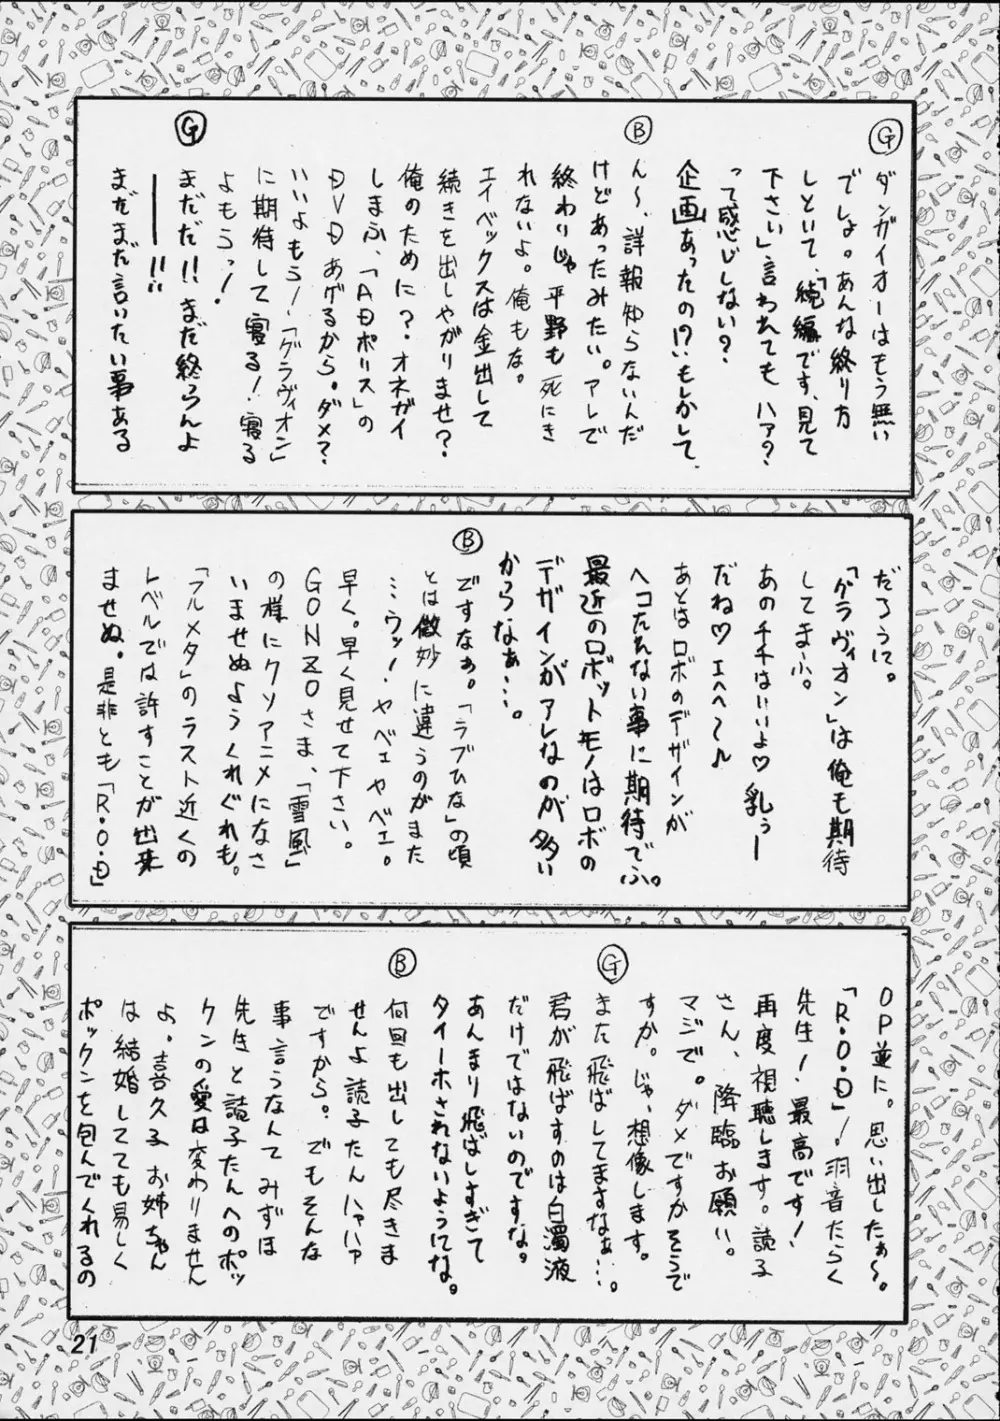 Ⓖ
ダンガイオーはもう無い
でしょ。あんな終り方
しといて、「続編です、見て
下さい」言われても ハァ?
って感じしない?
企画あったの!?いもしかして、
Ⓑ
ん〜、詳報知らないんだ
けどあったみたい。アレで
終わりじゃ平野も死にき
れないよ。俺もな。
エイベックスは金出して
続きを出しやがりませ?
俺のために?オネガイ
しまふ、「ADポリス」の
DVDあげるから。ダメ?
いいよもうー「グラヴィオン」
に期待して寝る!寝る
よもうっ!
Ⓖ
まだだ!!まだ終らんよ
――!!
まだまだ言いたい事ある
だろうに。
「グラヴィオン」は俺も期待
してまふ。
あの千千はいいよ♡乳ぅー
だね♡エヘヘ〜♪
あとはロボのデザインが
ヘコたれない事に期待でふ。
最近のロボットモノはロボの
デザインがアレなのが多い
からなぁ…。
Ⓑ
ですなぁ。「ラブひな」の頃
とは微妙に違うのがまた
…ウッ!ヤベェヤベェ。
早く。早く見せて下さい。
GONZOさま、「雪風」
の様にクソアニメになさ
いませぬようくれぐれも。
「フルメタ」のラスト近くの
レベルでは許すことが出来
ませぬ。是非とも「R・O・D」
OP並に。思い出したぁ〜。
「R・O・D」!羽音たらく
先生!最高です!
再度視聴します。読子
さん、降臨お願い。
マジで。ダメですかそうで
すか。じゃ、想像します。
Ⓖ
また飛ばしてますなぁ…。
君が飛ばすのは白濁液
だけではないのですな。
あんまり飛ばしすぎて
タイーホされないようにな。
Ⓑ
何回も出しても尽きま
せんよ読子たんハァハァ
ですから。でもそんな
事言うなんてみずほ
先生と読子たんへのポッ
クンの愛は変わりません
よ。喜久子お姉ちゃん
は結婚してても易しく
ポックンを包んでくれるの
21